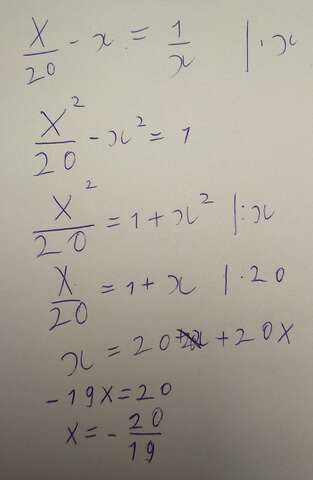 x/20 - x = 1/x |·x
x²/20 - x² = 1
x²/20 = 1 + x² |:x
x/20 = 1 + x |·20
x = 20 + 20x
-19x = 20
x = - 20/19